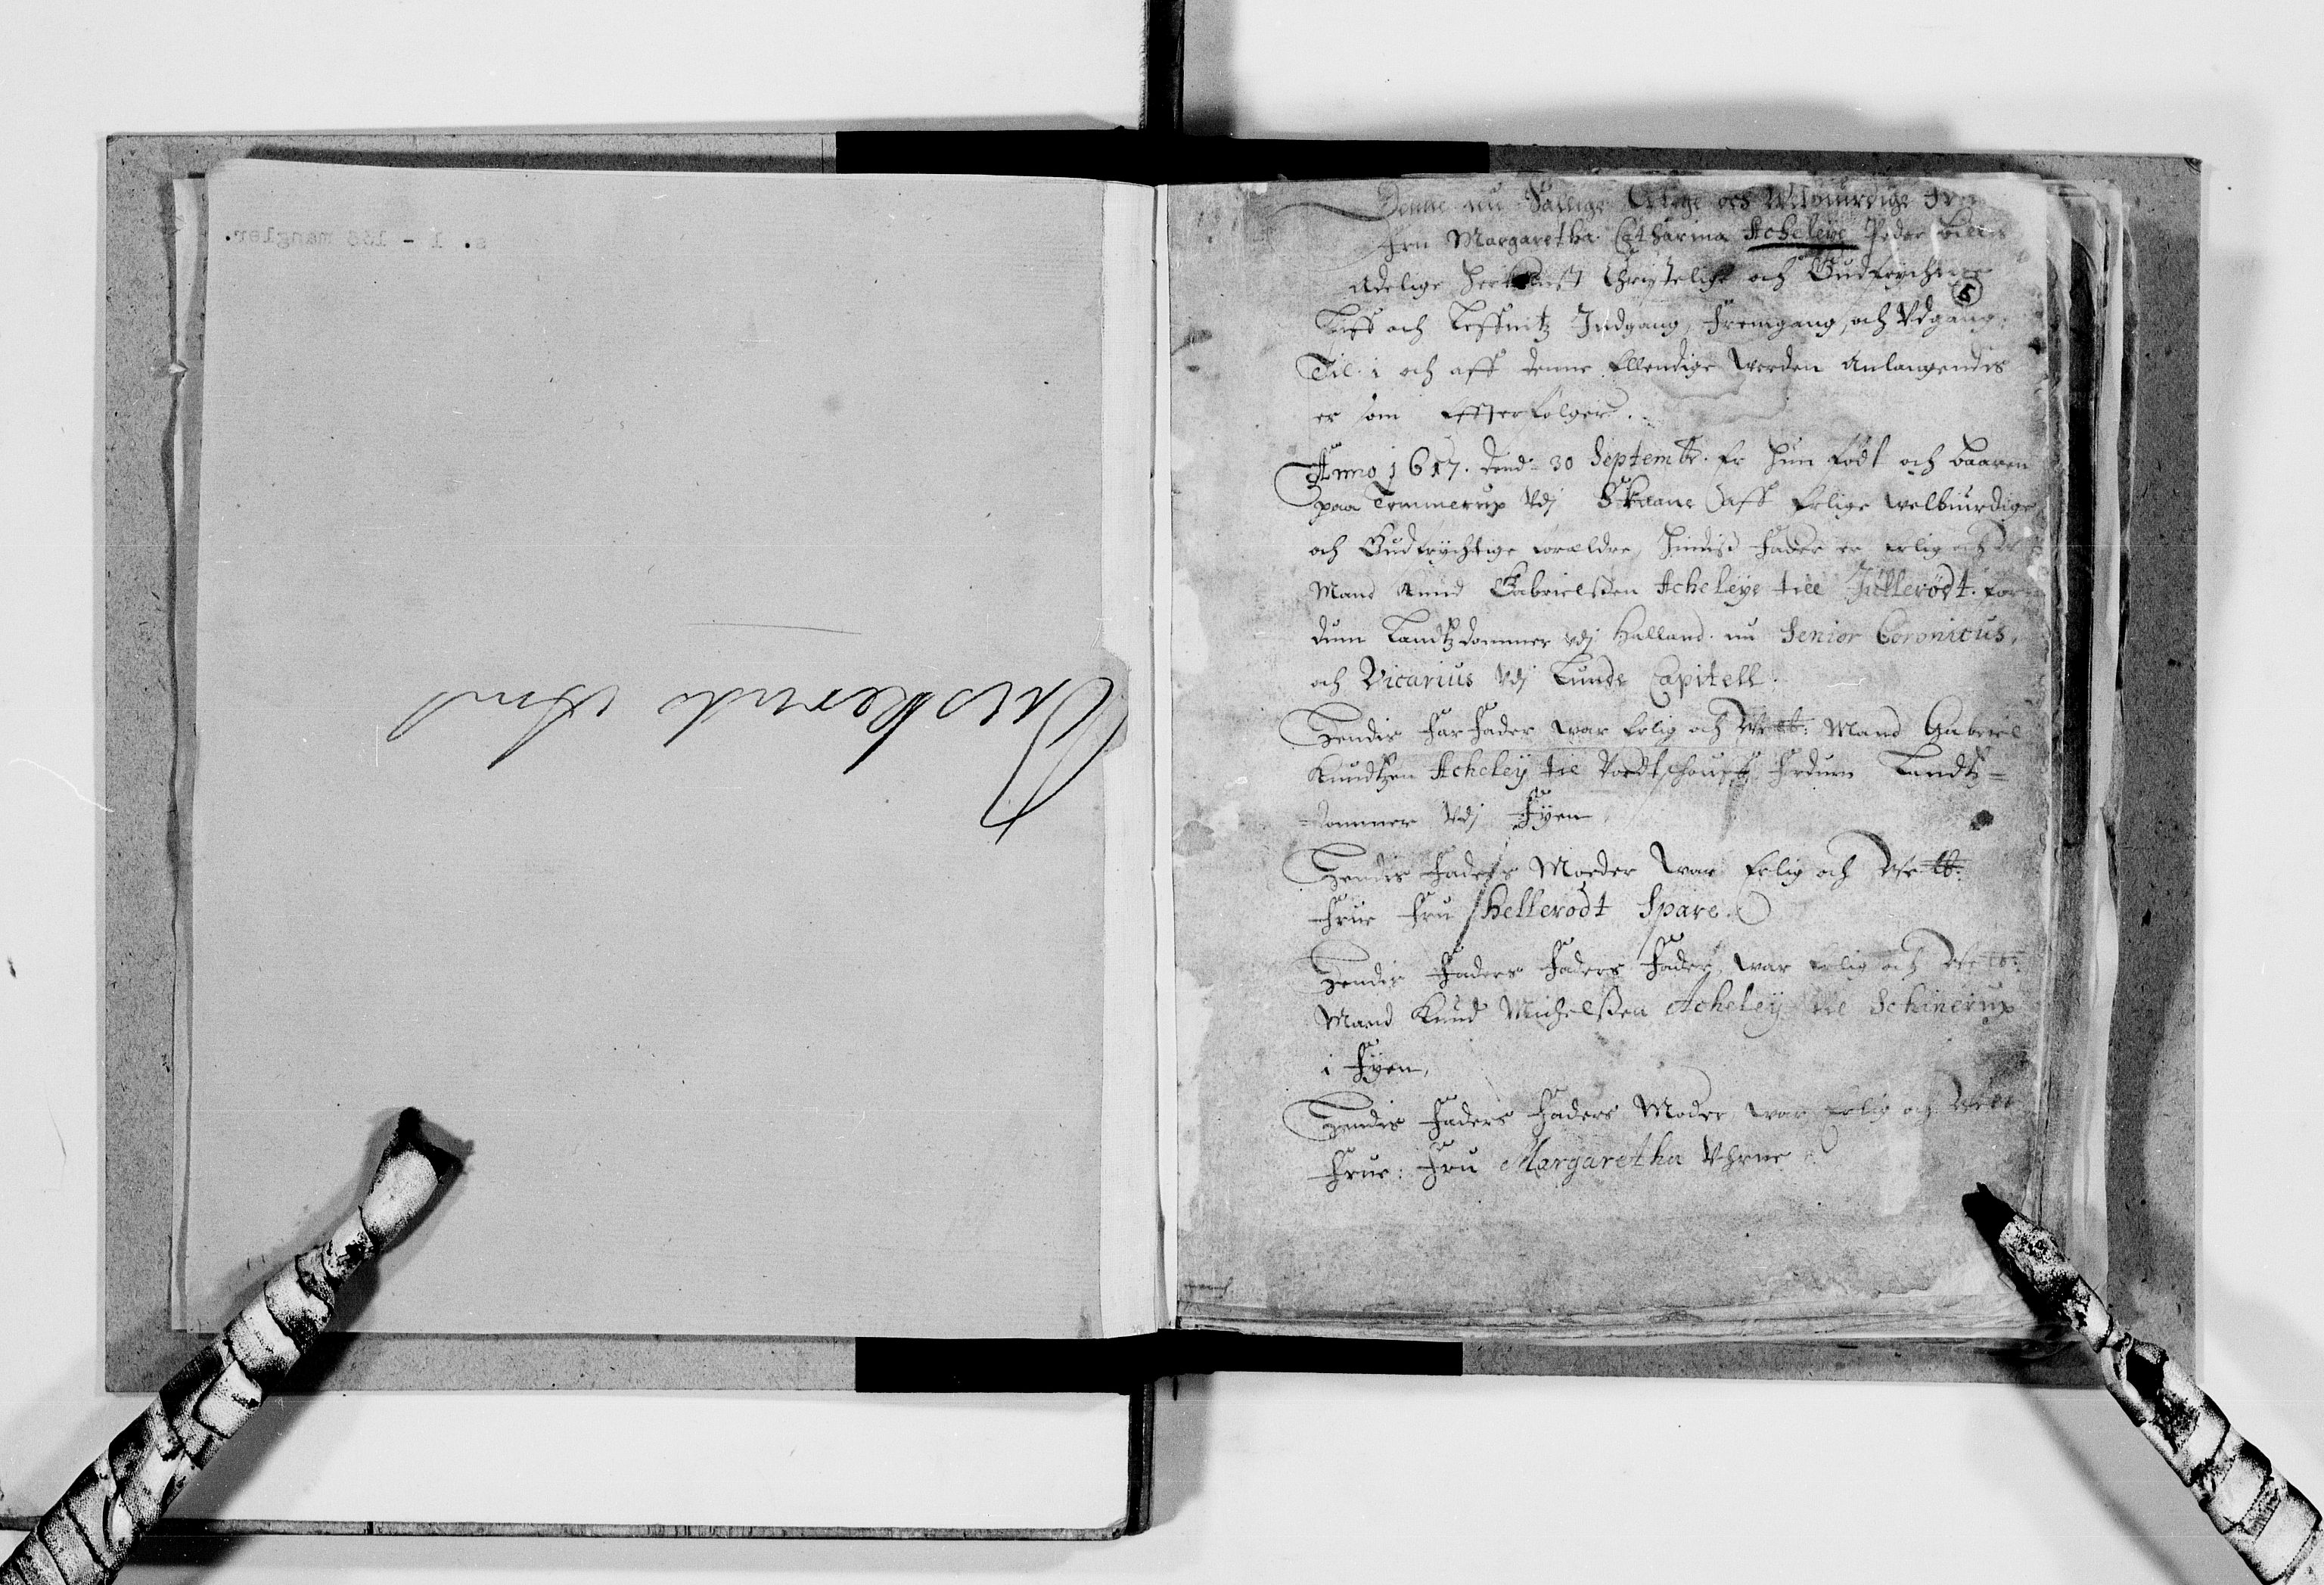 s. 1 - 138 mangler.
Buskeruds Amt
Denne nu Sallige Erlige och Welbiurdige Frue
Fru Margaretha Catharina Acheleye Peder Billes
Adelige Herkombst Christelige och Gudfrychtige
Liffs och Leffnitz Indgang, Fremgang, och Vdgang,
Til. i och aff denne Ellendige Verden Anlangendis
er som Effterfølger.
Anno 1617. Dend 30 Septembr. Er Hun født och baaren
paa Tommerup Vdj Skaane aff Erlige welbiurdige
och Gudfrychtige forældre, Hindis Fader er Erlig och
Mand Knud Gabrielsen Acheleye till Jullerødt. for
dum Landtzdommer vdj Halland. nu Senior Coronicus,
och Vicarius Vdj Lunde Capitell.
Hendis FarFader war Erlig och Welb: Mand Gabriel
Knudtzen Acheley til fordum Landtz=
=dommer Vdj Fyen
Hendis Faders Moeder War Erlig och Welb:
Frue Fru Hellerodt Spare.
Hendis Faders Faders Fader, war Erlig och Welb:
Mand Knud Michelsen Acheley til Schinerup
i Fyen,
Hendis Faders Faders Moder war Erlig och Welb
Frue: Fru Margaretha Vhrne
5